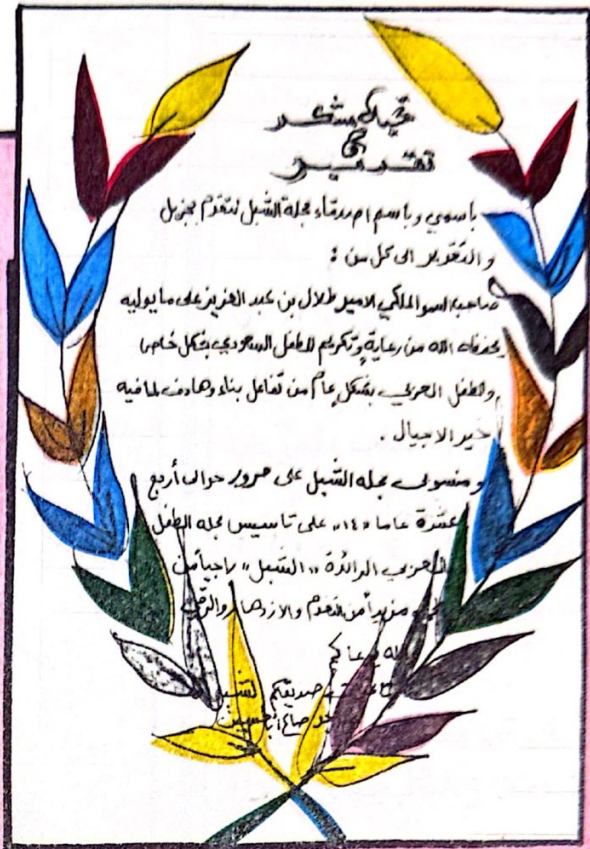 تحية شكر
و
تقدير
باسمي وباسم اصدقاء مجلة الشبل نتقدم بجزيل
و التقدير الى كل من :
صاحب السمو الملكي الامير طلال بن عبد العزيز على ما يوليه
يحفظه الله من رعاية وتكريم للطفل السعودي بشكل خاص
والطفل العربي بشكل عام من تفاعل بناء وهادف لما فيه
خير الاجيال .
و منسوبي مجلة الشبل على مرور حوالى أربع
عشرة عاما «١٤» على تاسيس مجلة الطفل
العربي الرائدة «الشبل» راجياً من
مزيداً من التقدم والازدهار والرقي
صديقكم الشبل
صالح